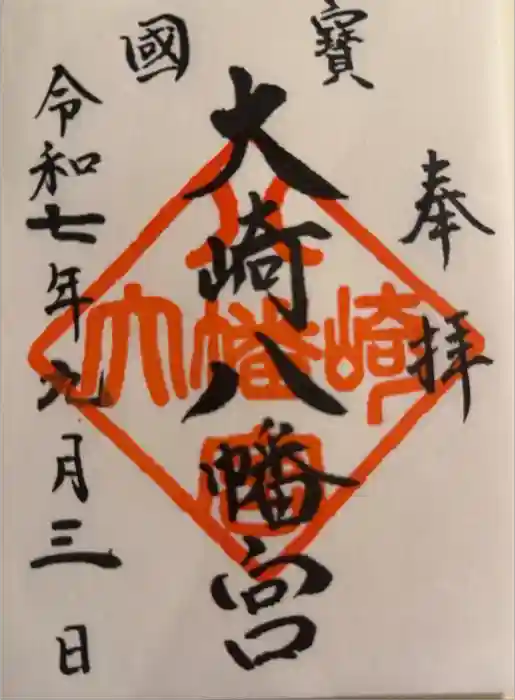 奉拝
國寶
大崎八幡宮
大崎八幡宮
令和七年九月三日